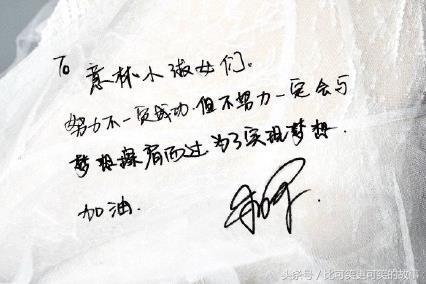 To 意林小淑女们。
努力不一定成功.但不努力一定会与
梦想擦肩而过为了实现梦想.
加油.
头条号/比可笑更可笑的故事